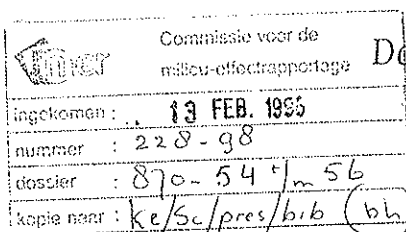 mer
Commissie voor de
milieu-effectrapportage
ingekomen : 13 FEB. 1995
nummer : 228-98
dossier : 870-54 t/m 56
kopie naar : Ke/Sc/pres/bib (bh